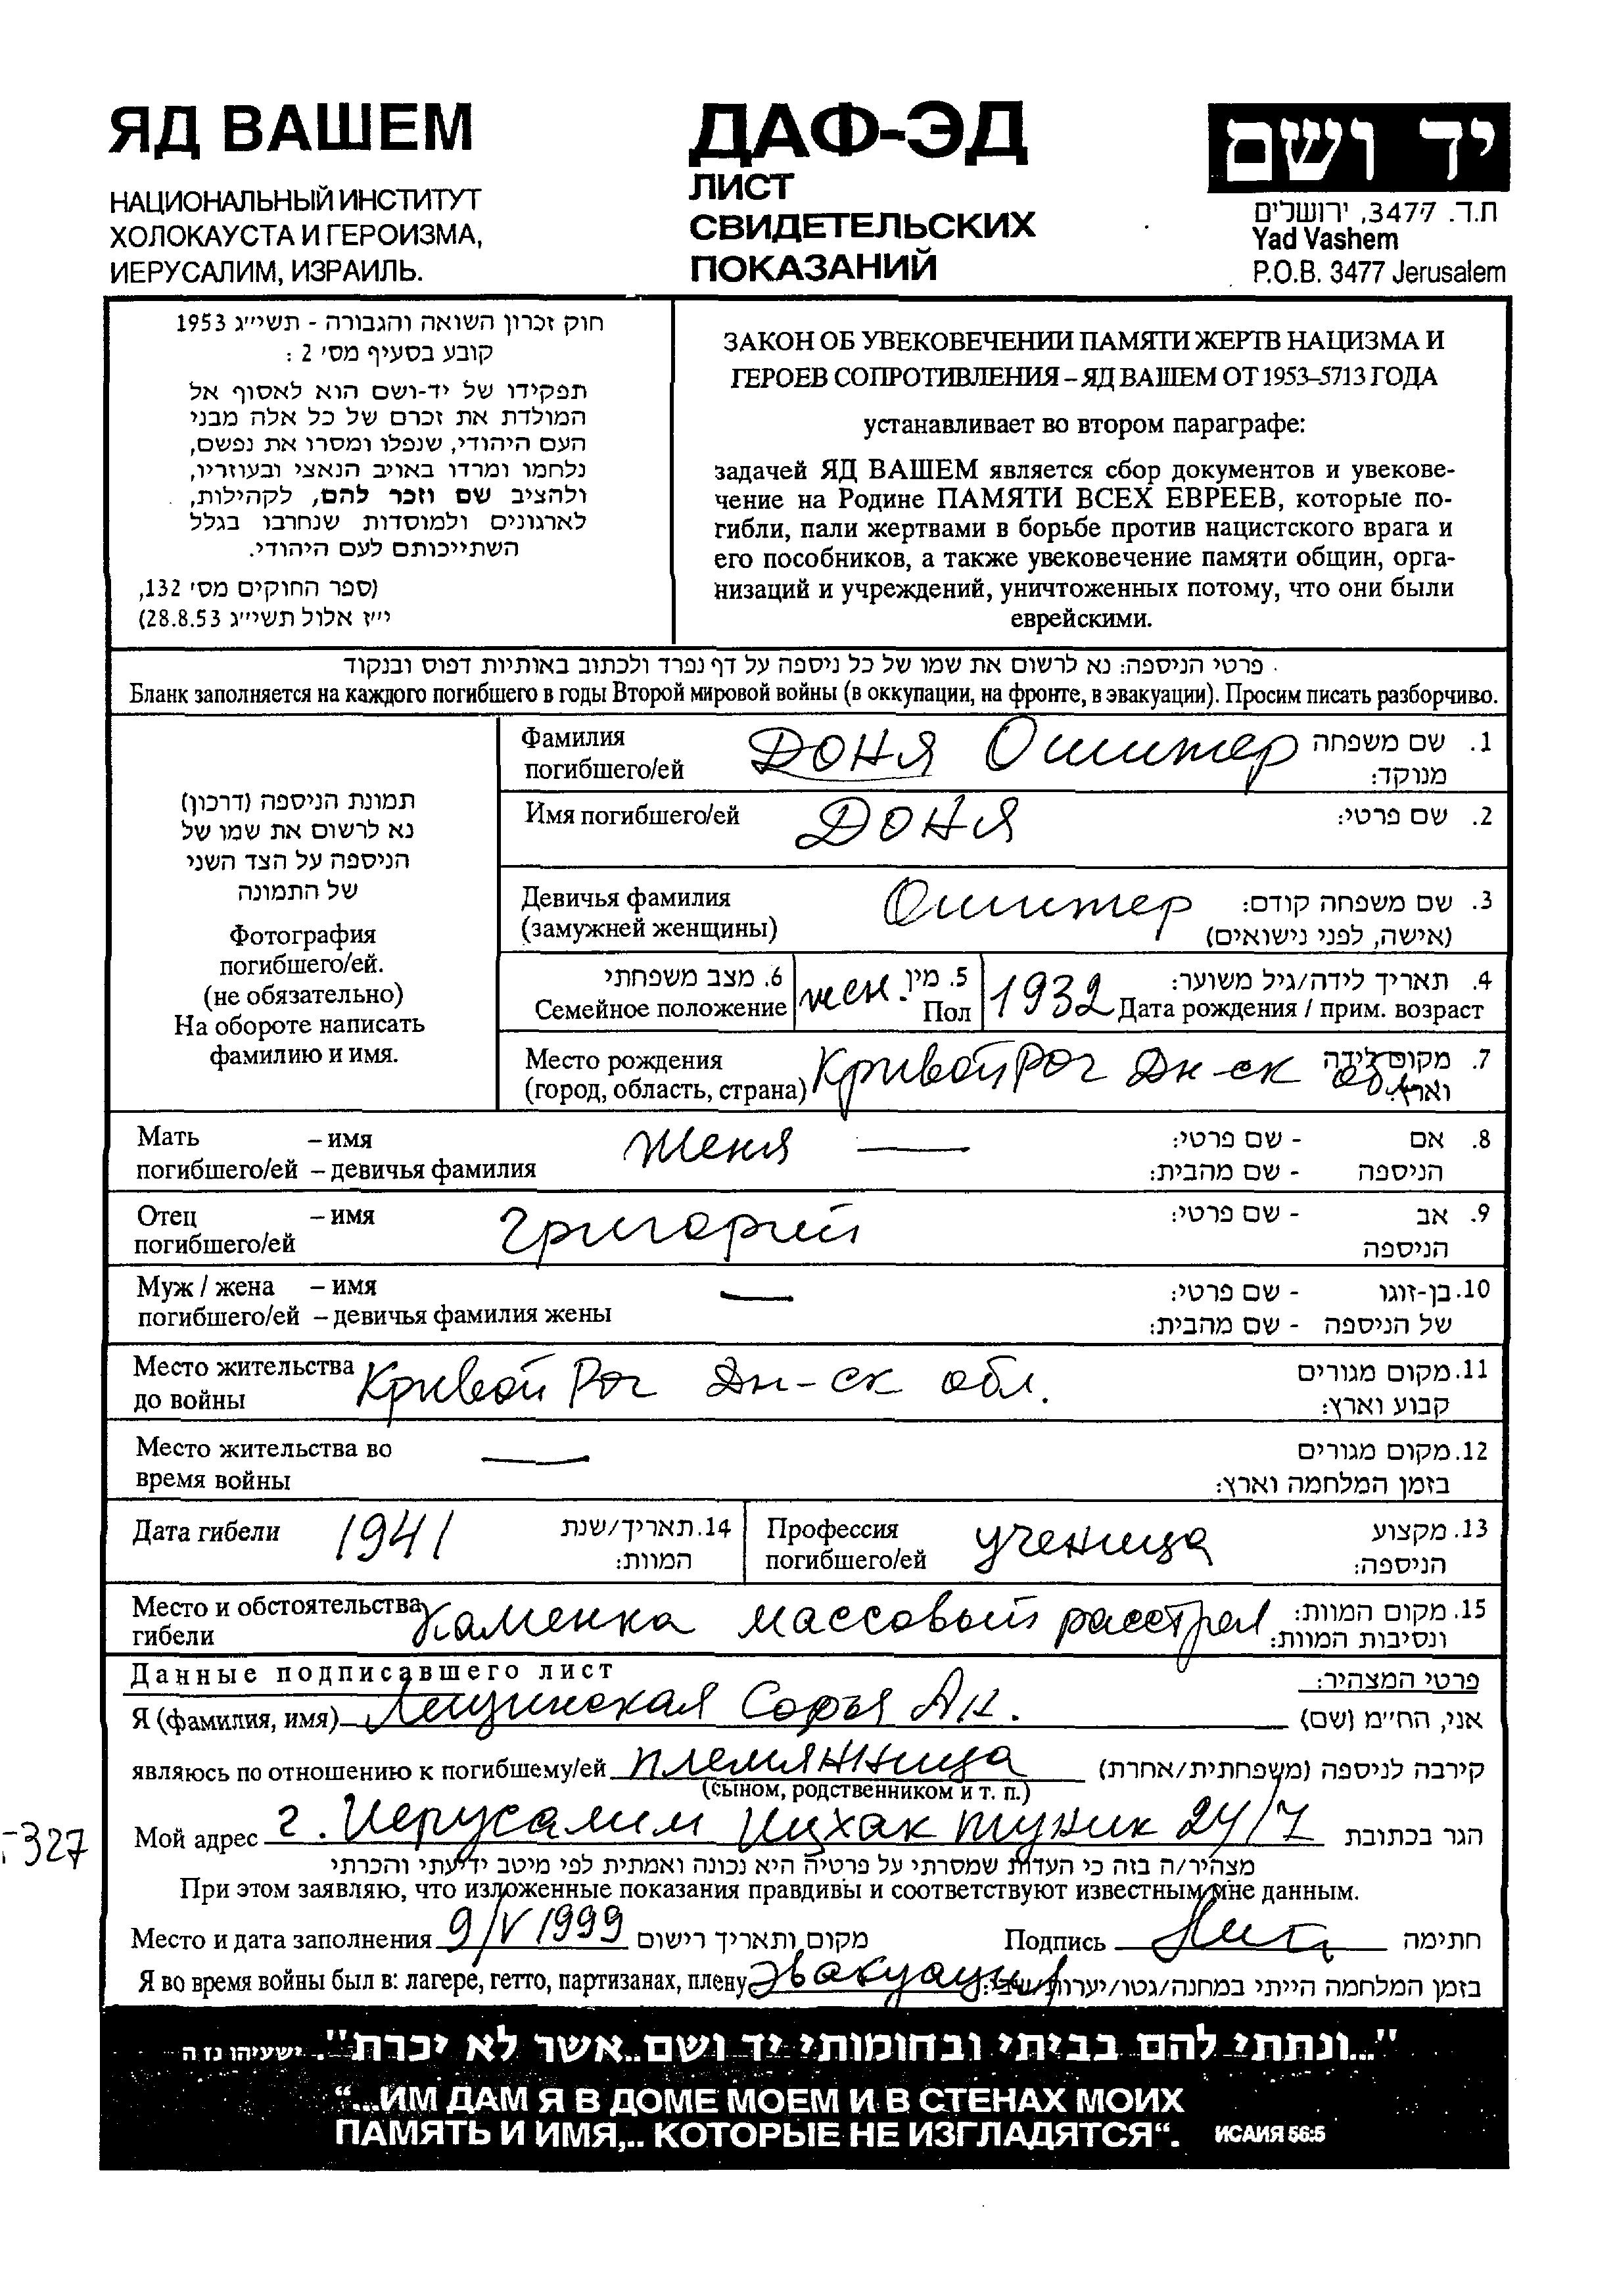 ЯД ВАШЕМ
НАЦИОНАЛЬНЫЙ ИНСТИТУТ
ХОЛОКАУСТА И ГЕРОИЗМА,
ИЕРУСАЛИМ, ИЗРАИЛЬ.
ДАФ-ЭД
ЛИСТ
СВИДЕТЕЛЬСКИХ
ПОКАЗАНИЙ
יד ושם
ת.ד. 3477, ירושלים
Yad Vashem
P.O.B. 3477 Jerusalem
חוק זכרון השואה והגבורה - תשי״ג 1953
קובע בסעיף מס׳ 2 :
תפקידו של יד-ושם הוא לאסוף אל
המולדת את זכרם של כל אלה מבני
העם היהודי, שנפלו ומסרו את נפשם,
נלחמו ומרדו באויב הנאצי ובעוזריו,
ולהציב שם וזכר להם, לקהילות,
לארגונים ולמוסדות שנחרבו בגלל
השתייכותם לעם היהודי.
(ספר החוקים מס׳ 132,
י״ז אלול תשי״ג 28.8.53)
ЗАКОН ОБ УВЕКОВЕЧЕНИИ ПАМЯТИ ЖЕРТВ НАЦИЗМА И
ГЕРОЕВ СОПРОТИВЛЕНИЯ – ЯД ВАШЕМ ОТ 1953–5713 ГОДА
устанавливает во втором параграфе:
задачей ЯД ВАШЕМ является сбор документов и увекове-
чение на Родине ПАМЯТИ ВСЕХ ЕВРЕЕВ, которые по-
гибли, пали жертвами в борьбе против нацистского врага и
его пособников, а также увековечение памяти общин, орга-
низаций и учреждений, уничтоженных потому, что они были
еврейскими.
פרטי הניספה: נא לרשום את שמו של כל ניספה על דף נפרד ולכתוב באותיות דפוס ובנקוד
Бланк заполняется на каждого погибшего в годы Второй мировой войны (в оккупации, на фронте, в эвакуации). Просим писать разборчиво.
תמונת הניספה (דרכון)
נא לרשום את שמו של
הניספה על הצד השני
של התמונה
Фотография
погибшего/ей.
(не обязательно)
На обороте написать
фамилию и имя.
Фамилия Доня Ошитер 1. שם משפחה
погибшего/ей מנוקד:
Имя погибшего/ей Доня 2. שם פרטי:
Девичья фамилия Ошитер 3. שם משפחה קודם:
(замужней женщины) (אישה, לפני נישואים)
6. מצב משפחתי 5. מין 4. תאריך לידה/גיל משוער:
Семейное положение жен. Пол 1932 Дата рождения / прим. возраст
Место рождения 7. מקום לידה
(город, область, страна) Кривой Рог Дн-ск обл. וארץ:
Мать – имя Женя — 8. אם - שם פרטי:
погибшего/ей – девичья фамилия הניספה - שם מהבית:
Отец – имя Григорий 9. אב - שם פרטי:
погибшего/ей הניספה
Муж / жена – имя — 10. בן-זוגו - שם פרטי:
погибшего/ей – девичья фамилия жены של הניספה - שם מהבית:
Место жительства Кривой Рог Дн-ск обл. 11. מקום מגורים
до войны קבוע וארץ:
Место жительства во — 12. מקום מגורים
время войны בזמן המלחמה וארץ:
Дата гибели 1941 14. תאריך/שנת המוות:
Профессия погибшего/ей ученица 13. מקצוע הניספה:
Место и обстоятельства Каменка массовый расстрел 15. מקום המוות:
гибели ונסיבות המוות:
Данные подписавшего лист פרטי המצהיר:
Я (фамилия, имя) Лещинская Софья Ак. אני, הח״מ (שם)
являюсь по отношению к погибшему/ей племянница קירבה לניספה (משפחתית/אחרת)
(сыном, родственником и т. п.)
Мой адрес г. Иерусалим Ицхак Туник 24/7 הגר בכתובת
-327
מצהיר/ה בזה כי העדות שמסרתי על פרטיה היא נכונה ואמתית לפי מיטב ידיעתי והכרתי
При этом заявляю, что изложенные показания правдивы и соответствуют известным мне данным.
Место и дата заполнения 9/V 1999 מקום ותאריך רישום Подпись חתימה
Я во время войны был в: лагере, гетто, партизанах, плену эвакуации בזמן המלחמה הייתי במחנה/גטו/יערות/שבי:
"...ונתתי להם בביתי ובחומותי יד ושם..אשר לא יכרת". ישעיהו נו ה
“...ИМ ДАМ Я В ДОМЕ МОЕМ И В СТЕНАХ МОИХ
ПАМЯТЬ И ИМЯ,.. КОТОРЫЕ НЕ ИЗГЛАДЯТСЯ“. ИСАИЯ 56:5